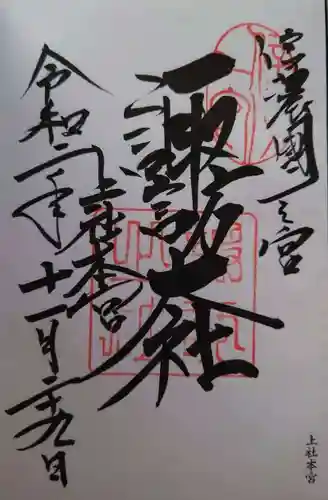 信濃國一之宮
諏訪大社
上社本宮
令和二年十一月二十九日
上社本宮